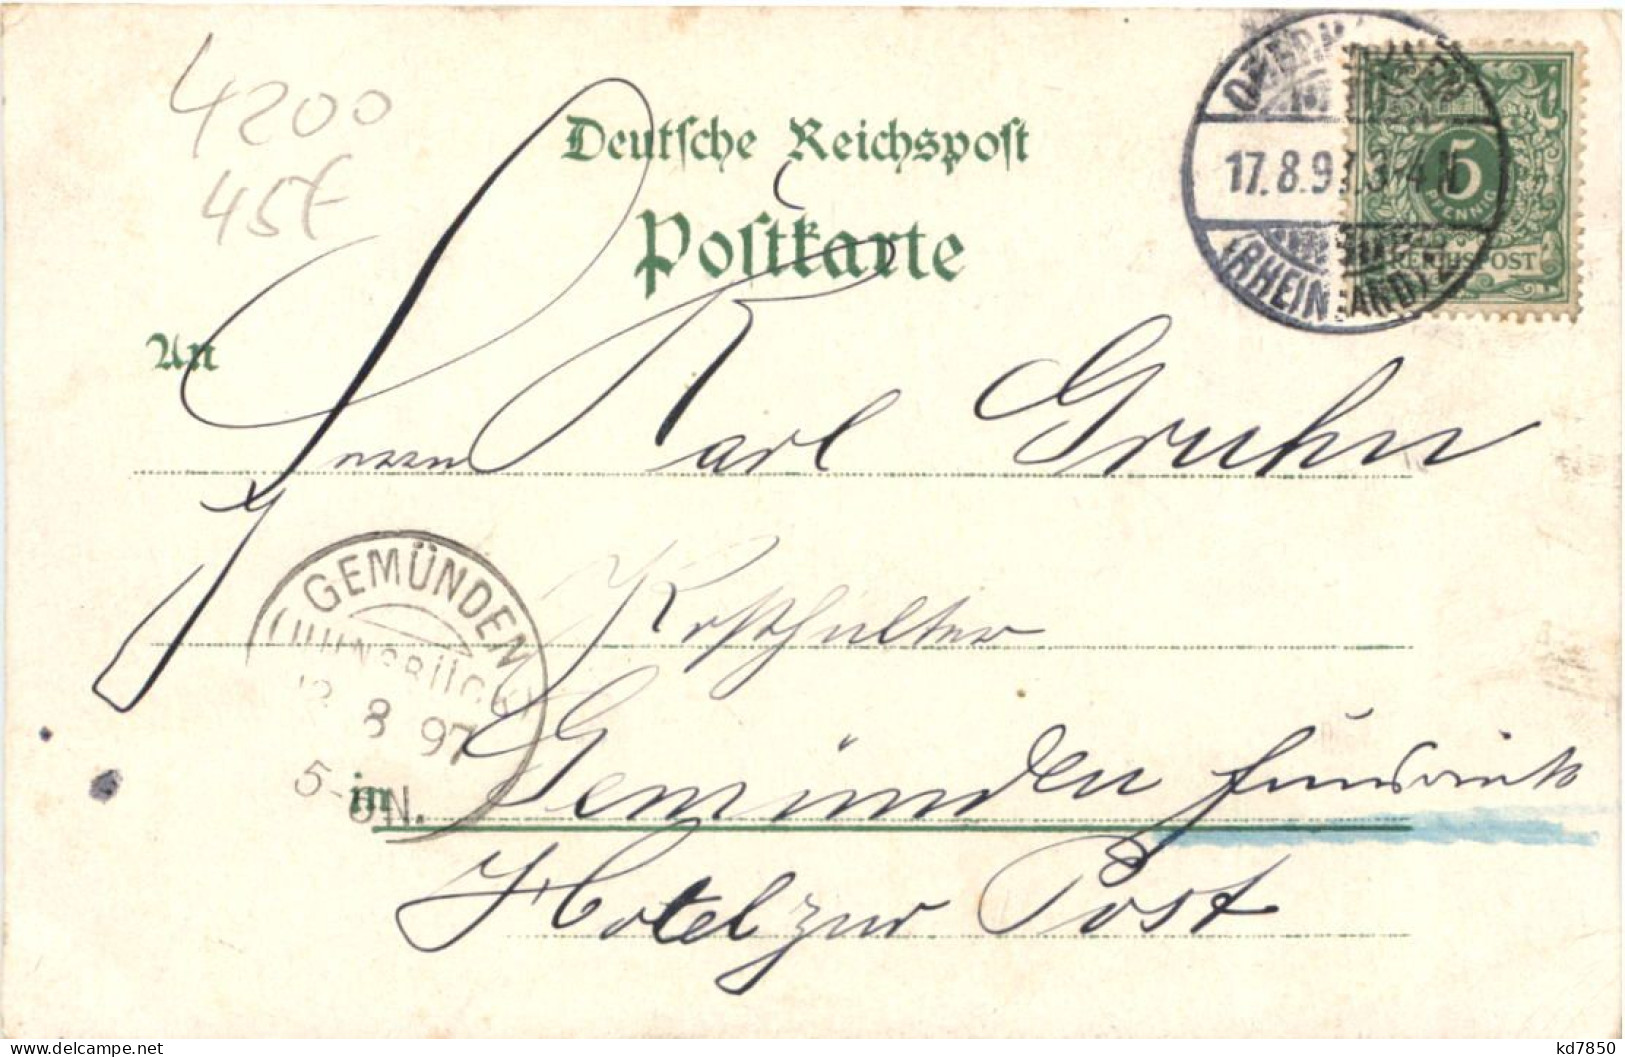 4200
45€
Deutsche Reichspost
Postkarte
17.8.97.3-4N
(RHEINLAND)
5
PFENNIG
REICHSPOST
An
Herrn Karl Gruhn
GEMÜNDEN
(HUNSRÜCK)
8 97
5-6N.
Posthalter
in Gemünden Hunsrück
Hotel zur Post
kd7850